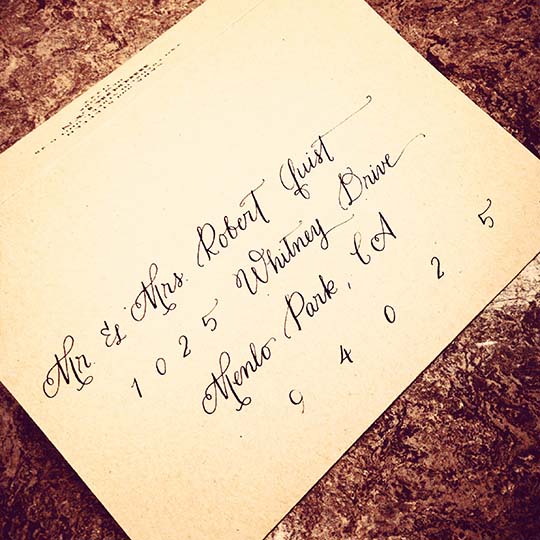 Mr. & Mrs. Robert Quist
1025 Whitney Drive
Menlo Park, CA
94025